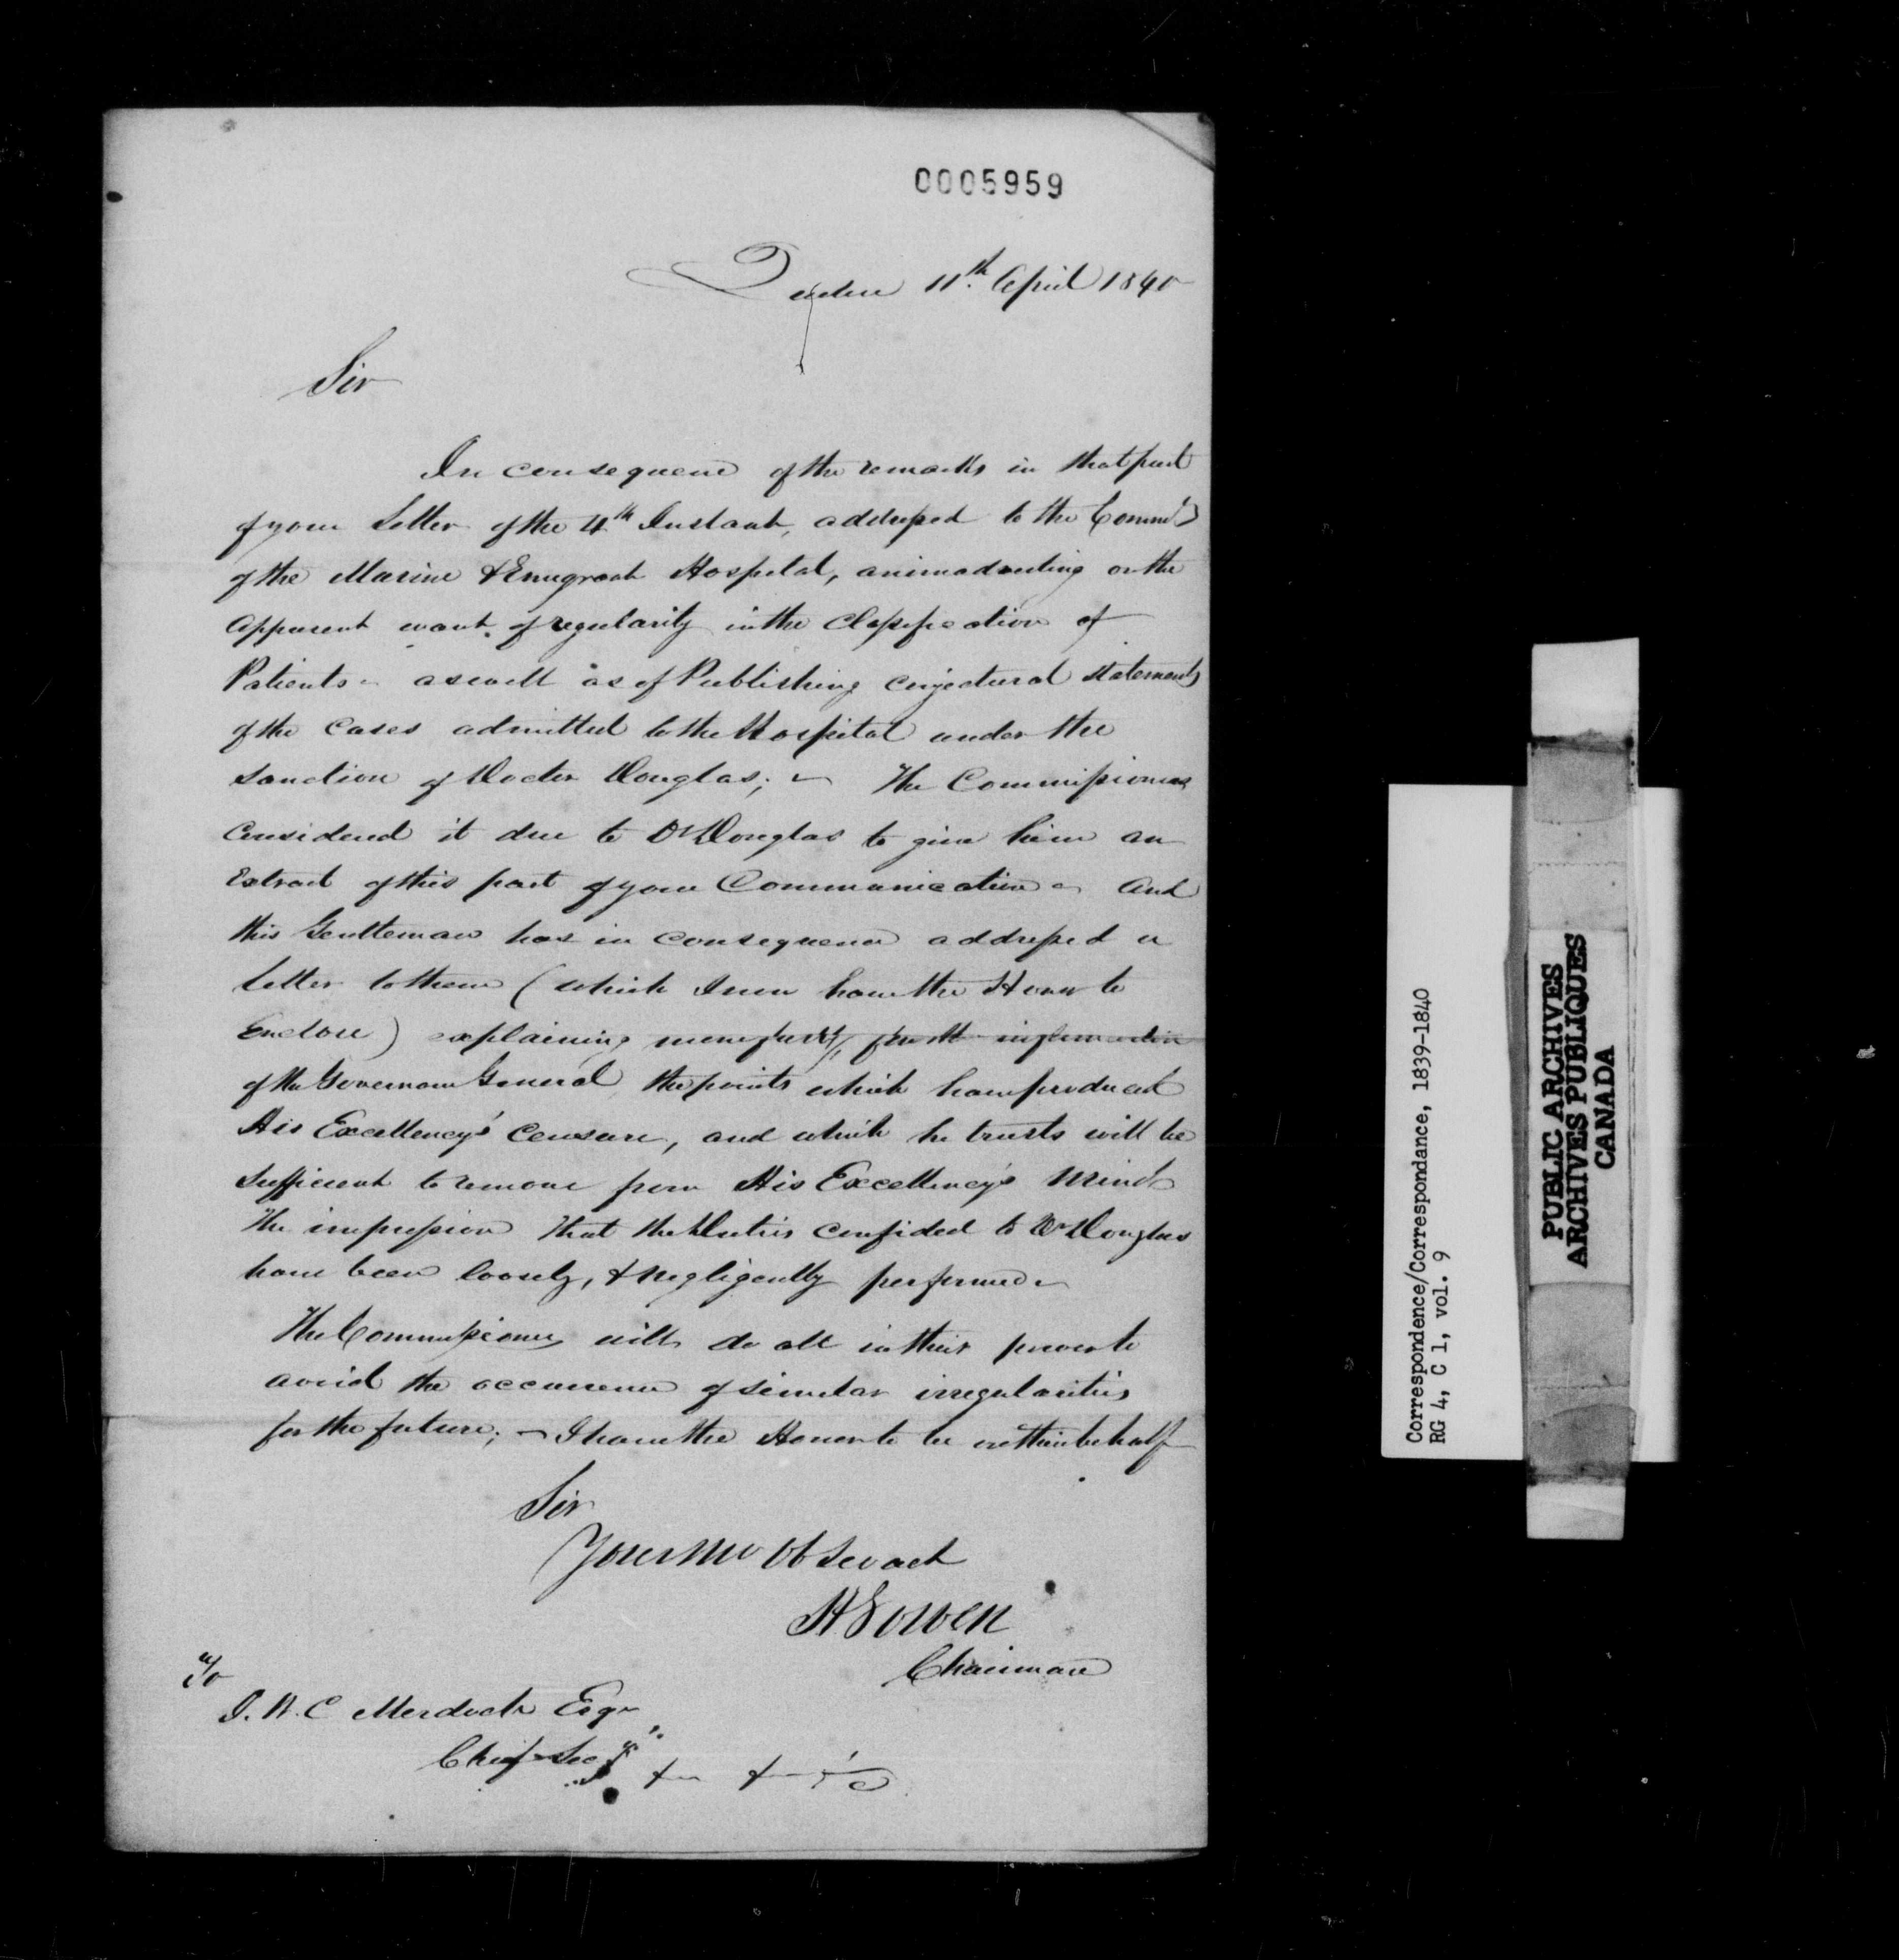 0005959
Quebec 11th. April 1840
Sir
In consequence of the remarks in that part
of your Letter of the 4th Instant, addressed to the Commrs
of the Marine & Emigrant Hospital, animadverting on the
apparent want of regularity in the Classification of
Patients - as well as of Publishing conjectural statements
of the Cases admitted to the Hospital under the
sanction of Doctor Douglas; - The Commissioners
Considered it due to Dr Douglas to give him an
Extract of this part of your Communication - and
this Gentleman has in consequence addressed a
Letter to them (which I now have the Honor to
Enclose) explaining for the information
of the Governour General the points which have produced
His Excellency's Censure, and which he trusts will be
sufficient to remove from His Excellency's Mind
the impression that the Duties confided to Dr Douglas
have been loosely, & negligently performed -
The Commissioners will do all in their power to
avoid the occurrence of similar irregularities
for the future; - I have the Honor to be on their behalf
Sir
Your Mo Ob Servant
H Gowen
Chairman
To
T. W. C Murdoch Esqr
Chief Secy
Correspondence/Correspondance, 1839-1840
RG 4, C 1, vol. 9
PUBLIC ARCHIVES
ARCHIVES PUBLIQUES
CANADA